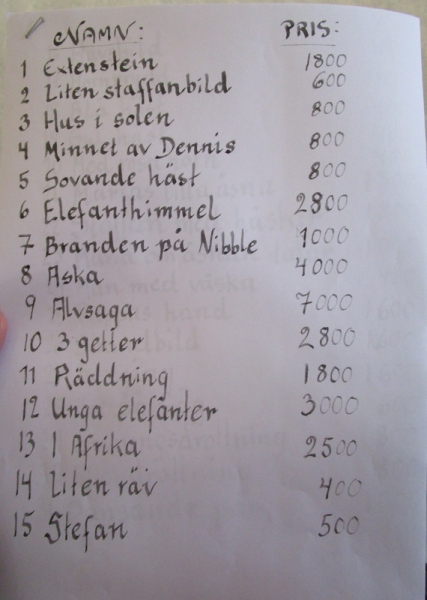 NAMN: PRIS:
1 Extenstein 1800
2 Liten staffanbild 600
3 Hus i solen 800
4 Minnet av Dennis 800
5 Sovande häst 800
6 Elefanthimmel 2800
7 Branden på Nibble 1000
8 Aska 4000
9 Alvsaga 7000
10 3 getter 2800
11 Räddning 1800
12 Unga elefanter 3000
13 I Afrika 2500
14 Liten räv 400
15 Stefan 500